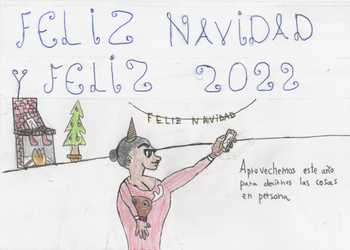 FELIZ NAVIDAD
FELIZ 2022
FELIZ NAVIDAD
Aprovechemos este año
para decirnos las cosas
en persona